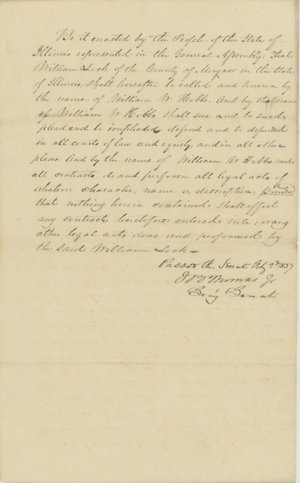 Be it enacted by the People of the State of
Illinois represented in the General Assembly: That
William Lock of the County of Morgan in the State
of Illinois, shall hereafter be called and known by
the name of William W. Hobbs. And by the name
of William W. Hobbs shall sue and be sued
plead and be impleaded defend and be defended
in all courts of law and equity, and in all other
places And by the name of William W. Hobbs make
all contracts do and perform all legal acts of
whatever character, name or description, Provided
that nothing herein contained shall affect
any contract heretofore entered into, or any
other legal acts done and performed by
the said William Lock—
Passed the Senate Feby
Thomas Jr
Secy Senate